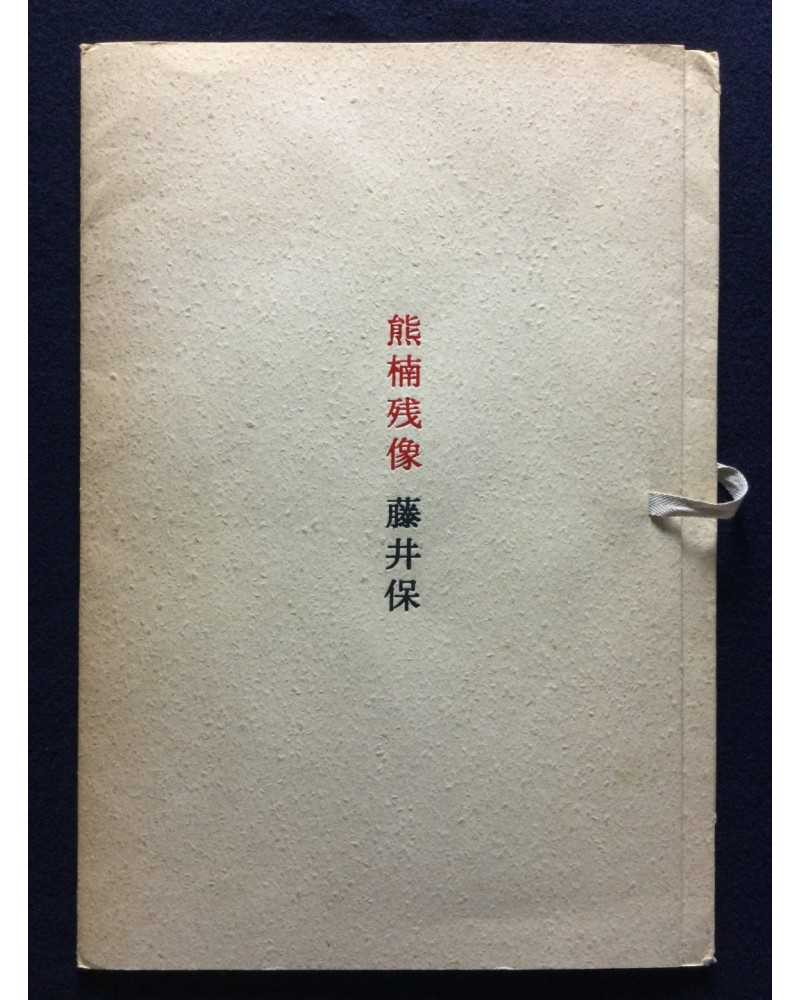 熊楠残像 藤井保